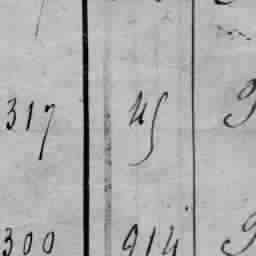 317 45
300 914